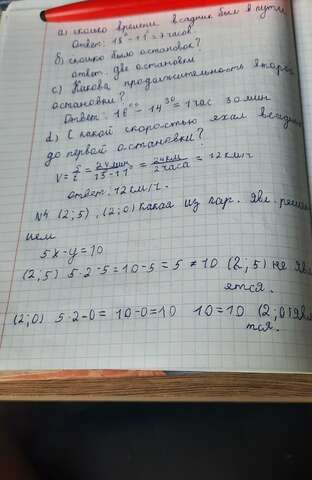 а) сколько времени всадник был в пути
Ответ: 18⁰⁰ - 11⁰⁰ = 7 часов
б) сколько было остановок?
ответ. две остановки
с) Какова продолжительность второй
остановки?
Ответ: 16⁰⁰ - 14³⁰ = 1 час 30 мин
d) С какой скоростью ехал всадник
до первой остановки?
V = = 24 км / 2 часа = 12 км/ч
ответ. 12 км/ч.
N4 (2; 5), (2; 0) Какая из пар. явл. решен
ием
5x - y = 10
(2, 5) 5·2-5 = 10-5 = 5 ≠ 10 (2; 5) не явл
яется.
(2; 0) 5·2-0 = 10-0 = 10 10 = 10 (2; 0) явл
тся.